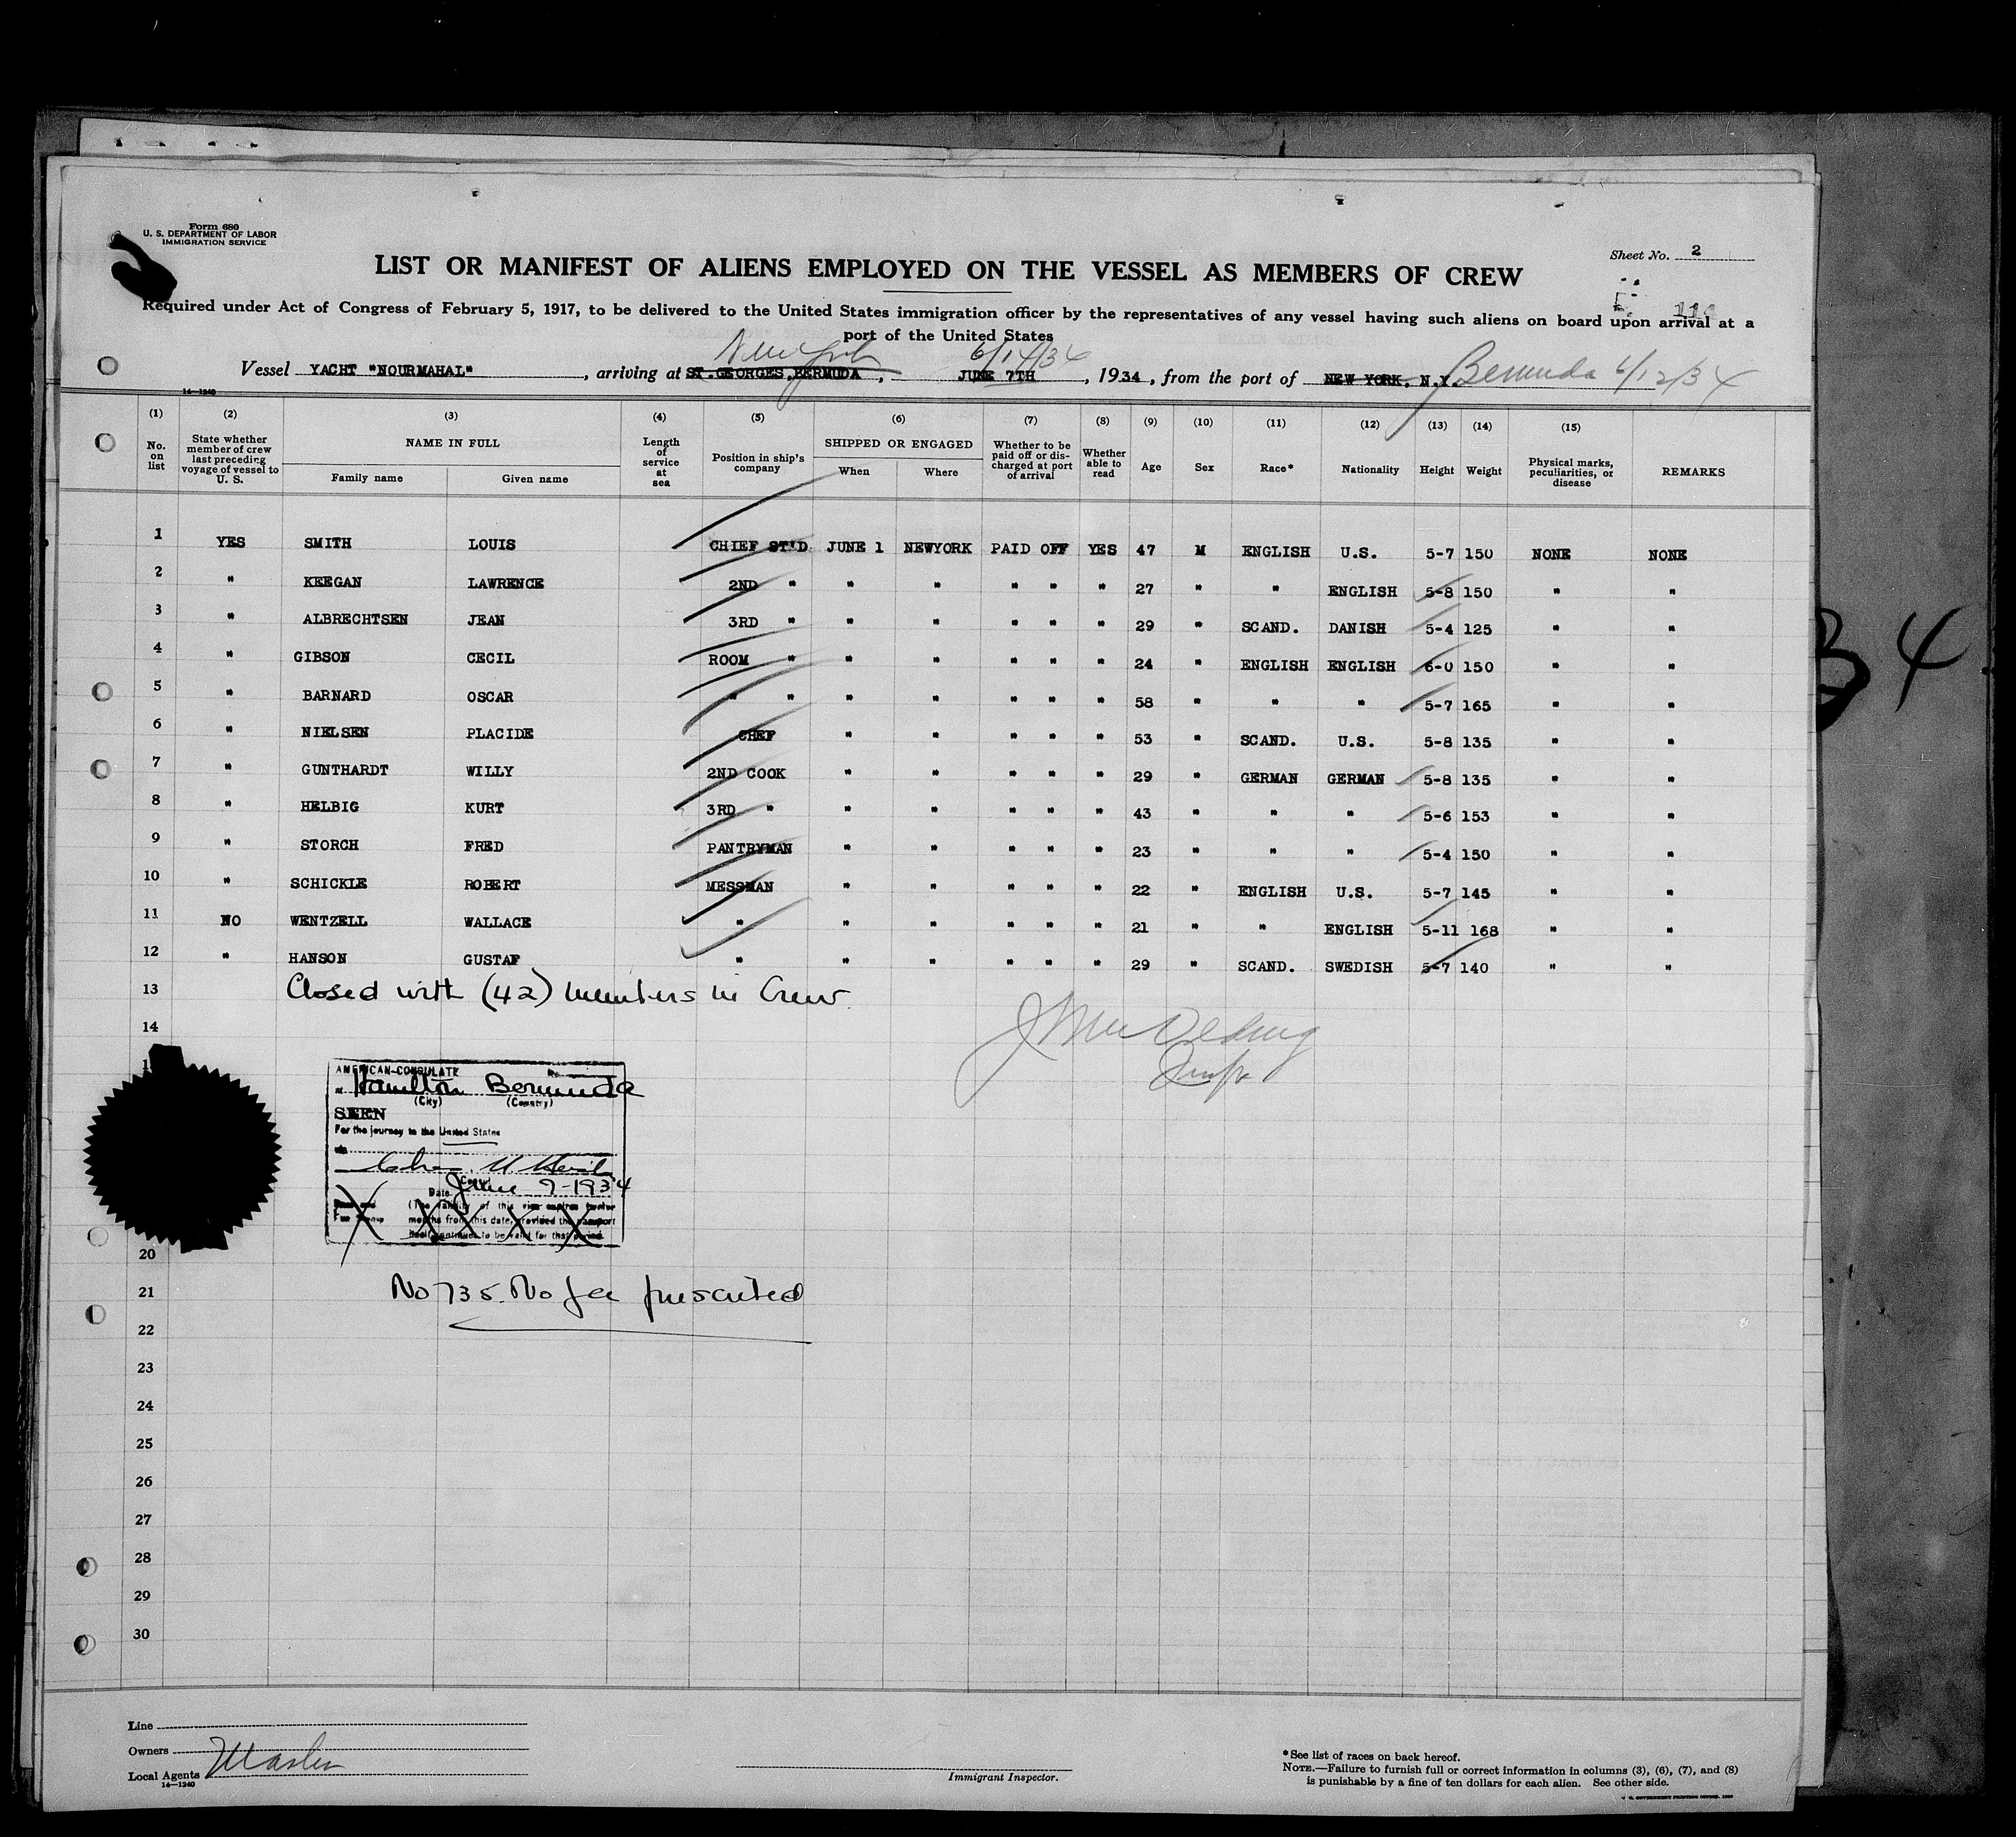 Form 680
U. S. DEPARTMENT OF LABOR
IMMIGRATION SERVICE
Sheet No. 2
LIST OR MANIFEST OF ALIENS EMPLOYED ON THE VESSEL AS MEMBERS OF CREW
Required under Act of Congress of February 5, 1917, to be delivered to the United States immigration officer by the representatives of any vessel having such aliens on board upon arrival at a
port of the United States
New York 6/14/34
Vessel YACHT "NOURMAHAL", arriving at ST.GEORGES,BERMUDA, JUNE 7TH, 1934, from the port of NEW YORK, N.Y. Bermuda 6/12/34
14—1240
(1) (2) (3) (4) (5) (6) (7) (8) (9) (10) (11) (12) (13) (14) (15)
No. on list State whether member of crew last preceding voyage of vessel to U. S. NAME IN FULL Family name Given name Length of service at sea Position in ship's company SHIPPED OR ENGAGED When Where Whether to be paid off or discharged at port of arrival Whether able to read Age Sex Race* Nationality Height Weight Physical marks, peculiarities, or disease REMARKS
1 YES SMITH LOUIS CHIEF ST'D JUNE 1 NEWYORK PAID OFF YES 47 M ENGLISH U.S. 5-7 150 NONE NONE
2 " KEEGAN LAWRENCE 2ND " " " " " " 27 " " ENGLISH 5-8 150 " "
3 " ALBRECHTSEN JEAN 3RD " " " " " " 29 " SCAND. DANISH 5-4 125 " "
4 " GIBSON CECIL ROOM " " " " " " 24 " ENGLISH ENGLISH 6-0 150 " "
5 " BARNARD OSCAR " " " " " " " 58 " " " 5-7 165 " "
6 " NIELSEN PLACIDE CHEF " " " " " 53 " SCAND. U.S. 5-8 135 " "
7 " GUNTHARDT WILLY 2ND COOK " " " " " 29 " GERMAN GERMAN 5-8 135 " "
8 " HELBIG KURT 3RD " " " " " " 43 " " " 5-6 153 " "
9 " STORCH FRED PANTRYMAN " " " " " 23 " " " 5-4 150 " "
10 " SCHICKLE ROBERT MESSMAN " " " " " 22 " ENGLISH U.S. 5-7 145 " "
11 NO WENTZELL WALLACE " " " " " " 21 " " ENGLISH 5-11 168 " "
12 " HANSON GUSTAF " " " " " " 29 " SCAND. SWEDISH 5-7 140 " "
13 Closed with (42) members in Crew
14
AMERICAN CONSULATE
at Hamilton Bermuda
(City) (Country)
SEEN
For the journey to the United States
Date June 9-1934
(The validity of this visa expires twelve
months from this date, provided the passport
itself continues to be valid for that period.
20
21 No 735. No fee prescribed
22
23
24
25
26
27
28
29
30
Line
Owners
Local Agents
Master
14—1240
Immigrant Inspector.
*See list of races on back hereof.
NOTE.—Failure to furnish full or correct information in columns (3), (6), (7), and (8)
is punishable by a fine of ten dollars for each alien. See other side.
34